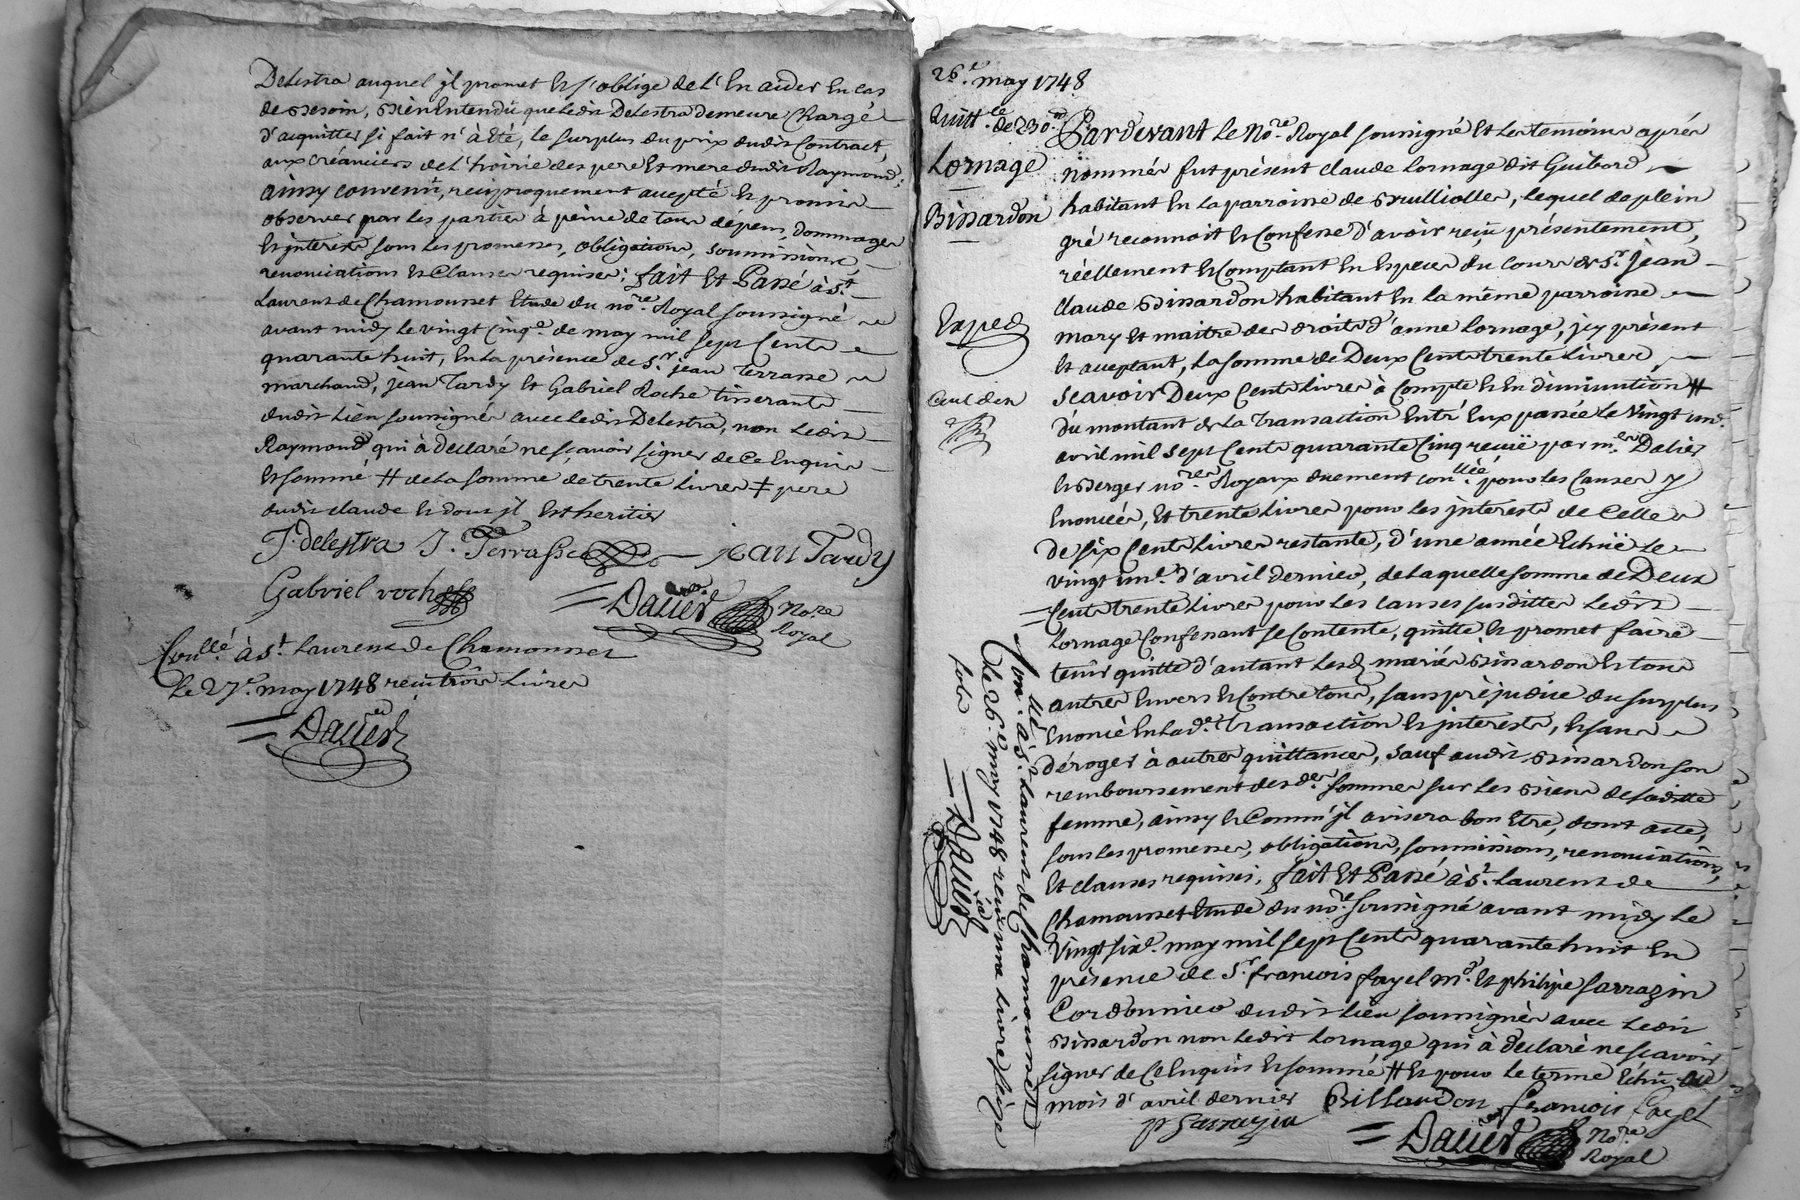 Delestra auquel jl promet et s'oblige de l'En aider En cas
de Besoin, Bien Entendu que ledit Delestra demeure Chargé
d'aquitter si fait n'à Eté, le surplus du prix dudit Contract,
aux créanciers de l'hoirie des pere Et mere dudit Raymond,
ainsy convenû, reciproquement accepté et promis
observer par les parties à peine de tous dépens, dommages
Et jnterests sous les promesses, obligations, soumissions,
renonciations et Clauses requises; fait Et Passé à St.
Laurent de Chamousset Etude du nore. Royal soussigné
avant midy le vingt Cinqe. de may mil sept Cents
quarante huit, En la présence de Sr. jean Terrasse
marchand, jean Tardy Et Gabriel Roche tisserants
dudit Lieu soussignés avec ledit Delestra, non ledit
Raymond qui à déclaré ne sçavoir signer de Ce Enquis
Et sommé # de la somme de trente Livres ‡ pere
dudit claude Et dont jl Est heritier
J. delestra J. Terrasse jean Tardy
Gabriel roche Daüer Nore. Royal
Conllé. à St. Laurent de Chamousset
le 27e. may 1748 reçu trois Livres
Daüer
26e. may 1748
Quittce. de 230tt
Lornage
Binardon
Exped
Pardevant Le Nore. Royal soussigné Et les temoins aprés
nommés fut présent claude Lornage dit Guibord
habitant En la parroisse de Brullioles, lequel de plein
gré reconnoit Et Confesse d'avoir reçû présentement,
réellement et Comptant En Especes du Cours de Sr. jean
claude Binardon habitant En la même parroisse
mary Et maitre des droits d'anne Lornage, jcy présent
Et acceptant, La somme de Deux Cents trente Livres,
sçavoir Deux Cents Livres à Compte et En diminution #
du montant de la Transaction Entr'Eux passée le Vingt une.
avril mil sept Cents quarante Cinq receüe par mes. Dalier
et Berger nores. Royaux duement conllée. pour les Causes y
Enoncées, Et trente Livres pour les jnterests de Celle
de six Cents Livres restante, d'une année Echüe le
vingt une. d'avril dernier, de Laquelle somme de Deux
Cents trente Livres pour les causes susdittes ledit
Lornage Confessant se Contente, quitte Et promet faire
tenir quitte d'autant lesd. mariés Binardon Et tous
autres Envers Et Contre tous, sans préjudice du surplus
Enoncé En lade. Transaction Et jnterests, Et sans
déroger à autres quittances, sauf audit Binardon son
remboursement desdes. sommes sur les Biens de saditte
femme, ainsy et Comm'jl avisera bon Etre, dont acte,
sous les promesses, obligations, soumissions, renonciations,
Et clauses requises; fait Et Passé à St. Laurent de
Chamousset Etude du nore. soussigné avant midy le
Vingt sixe. may mil sept Cents quarante huit En
présence de Sr. françois fayel md. Et philipe Sarrazin
Cordonnier dudit Lieu soussignés avec ledit
Binardon non ledit Lornage qui à déclaré ne sçavoir
signer de Ce Enquis Et sommé # Et pour le terme Echû au
mois d'avril dernier Billardon françois fayel
p Sarrazin
Daüer Nore. Royal
Conllé. à St. Laurent de Chamousset
le 26e. may 1748 reçu une Livre seize
sols
Daüer